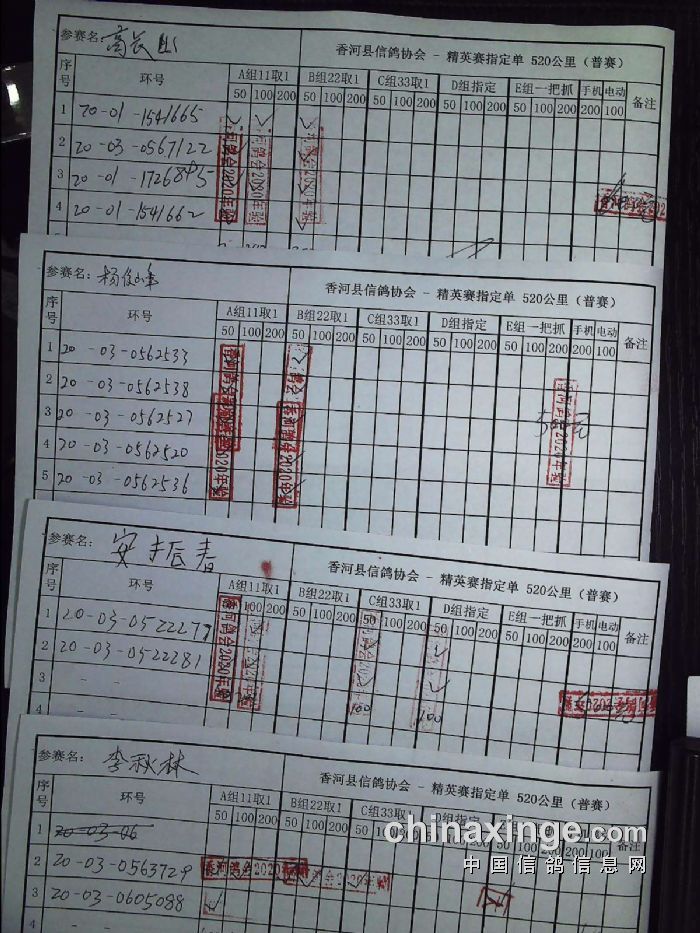 参赛名: 高长山 香河县信鸽协会 - 精英赛指定单 520公里（普赛）
序号 环号 A组11取1 B组22取1 C组33取1 D组指定 E组一把抓 手机 电动 备注
50 100 200 50 100 200 50 100 200 50 100 200 50 100 200 200 100
1 20-01-1541665
2 20-03-0567122
3 20-01-1726895
4 20-01-1541662
参赛名: 香河县信鸽协会 - 精英赛指定单 520公里（普赛）
序号 环号 A组11取1 B组22取1 C组33取1 D组指定 E组一把抓 手机 电动 备注
50 100 200 50 100 200 50 100 200 50 100 200 50 100 200 200 100
1 20-03-0562533
2 20-03-0562538
3 20-03-0562527
4 20-03-0562520
5 20-03-0562536
参赛名: 安振春 香河县信鸽协会 - 精英赛指定单 520公里（普赛）
序号 环号 A组11取1 B组22取1 C组33取1 D组指定 E组一把抓 手机 电动 备注
50 100 200 50 100 200 50 100 200 50 100 200 50 100 200 200 100
1 20-03-0522277
2 20-03-0522281
3 - -
4 - -
100 100
参赛名: 李秋林 香河县信鸽协会 - 精英赛指定单 520公里（普赛）
序号 环号 A组11取1 B组22取1 C组33取1
50 100 200 50 100 200 50 100 200
1 20-03-06
2 20-03-0563729 香河鸽会2020年验
3 20-03-0605088
4
chinaxinge.com
中国信鸽信息网